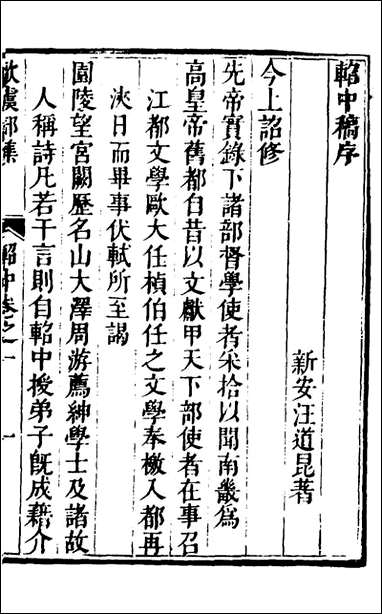 軺中稿序
新安汪道昆著
今上詔修
先帝實錄下諸部督學使者采拾以聞南畿為
高皇帝舊都自昔以文獻甲天下部使者在事召
江都文學歐大任楨伯任之文學奉檄入都再
浹日而畢事伏軾所至謁
園陵望宮闕歷名山大澤周游薦紳學士及諸故
人稱詩凡若干言則自軺中授弟子旣成藉介
歐虞部集
軺中卷之一
一